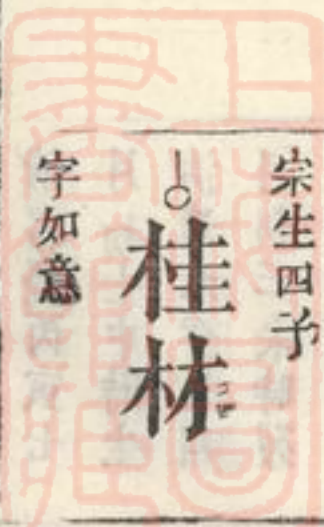 宗生四子
桂林
字如意